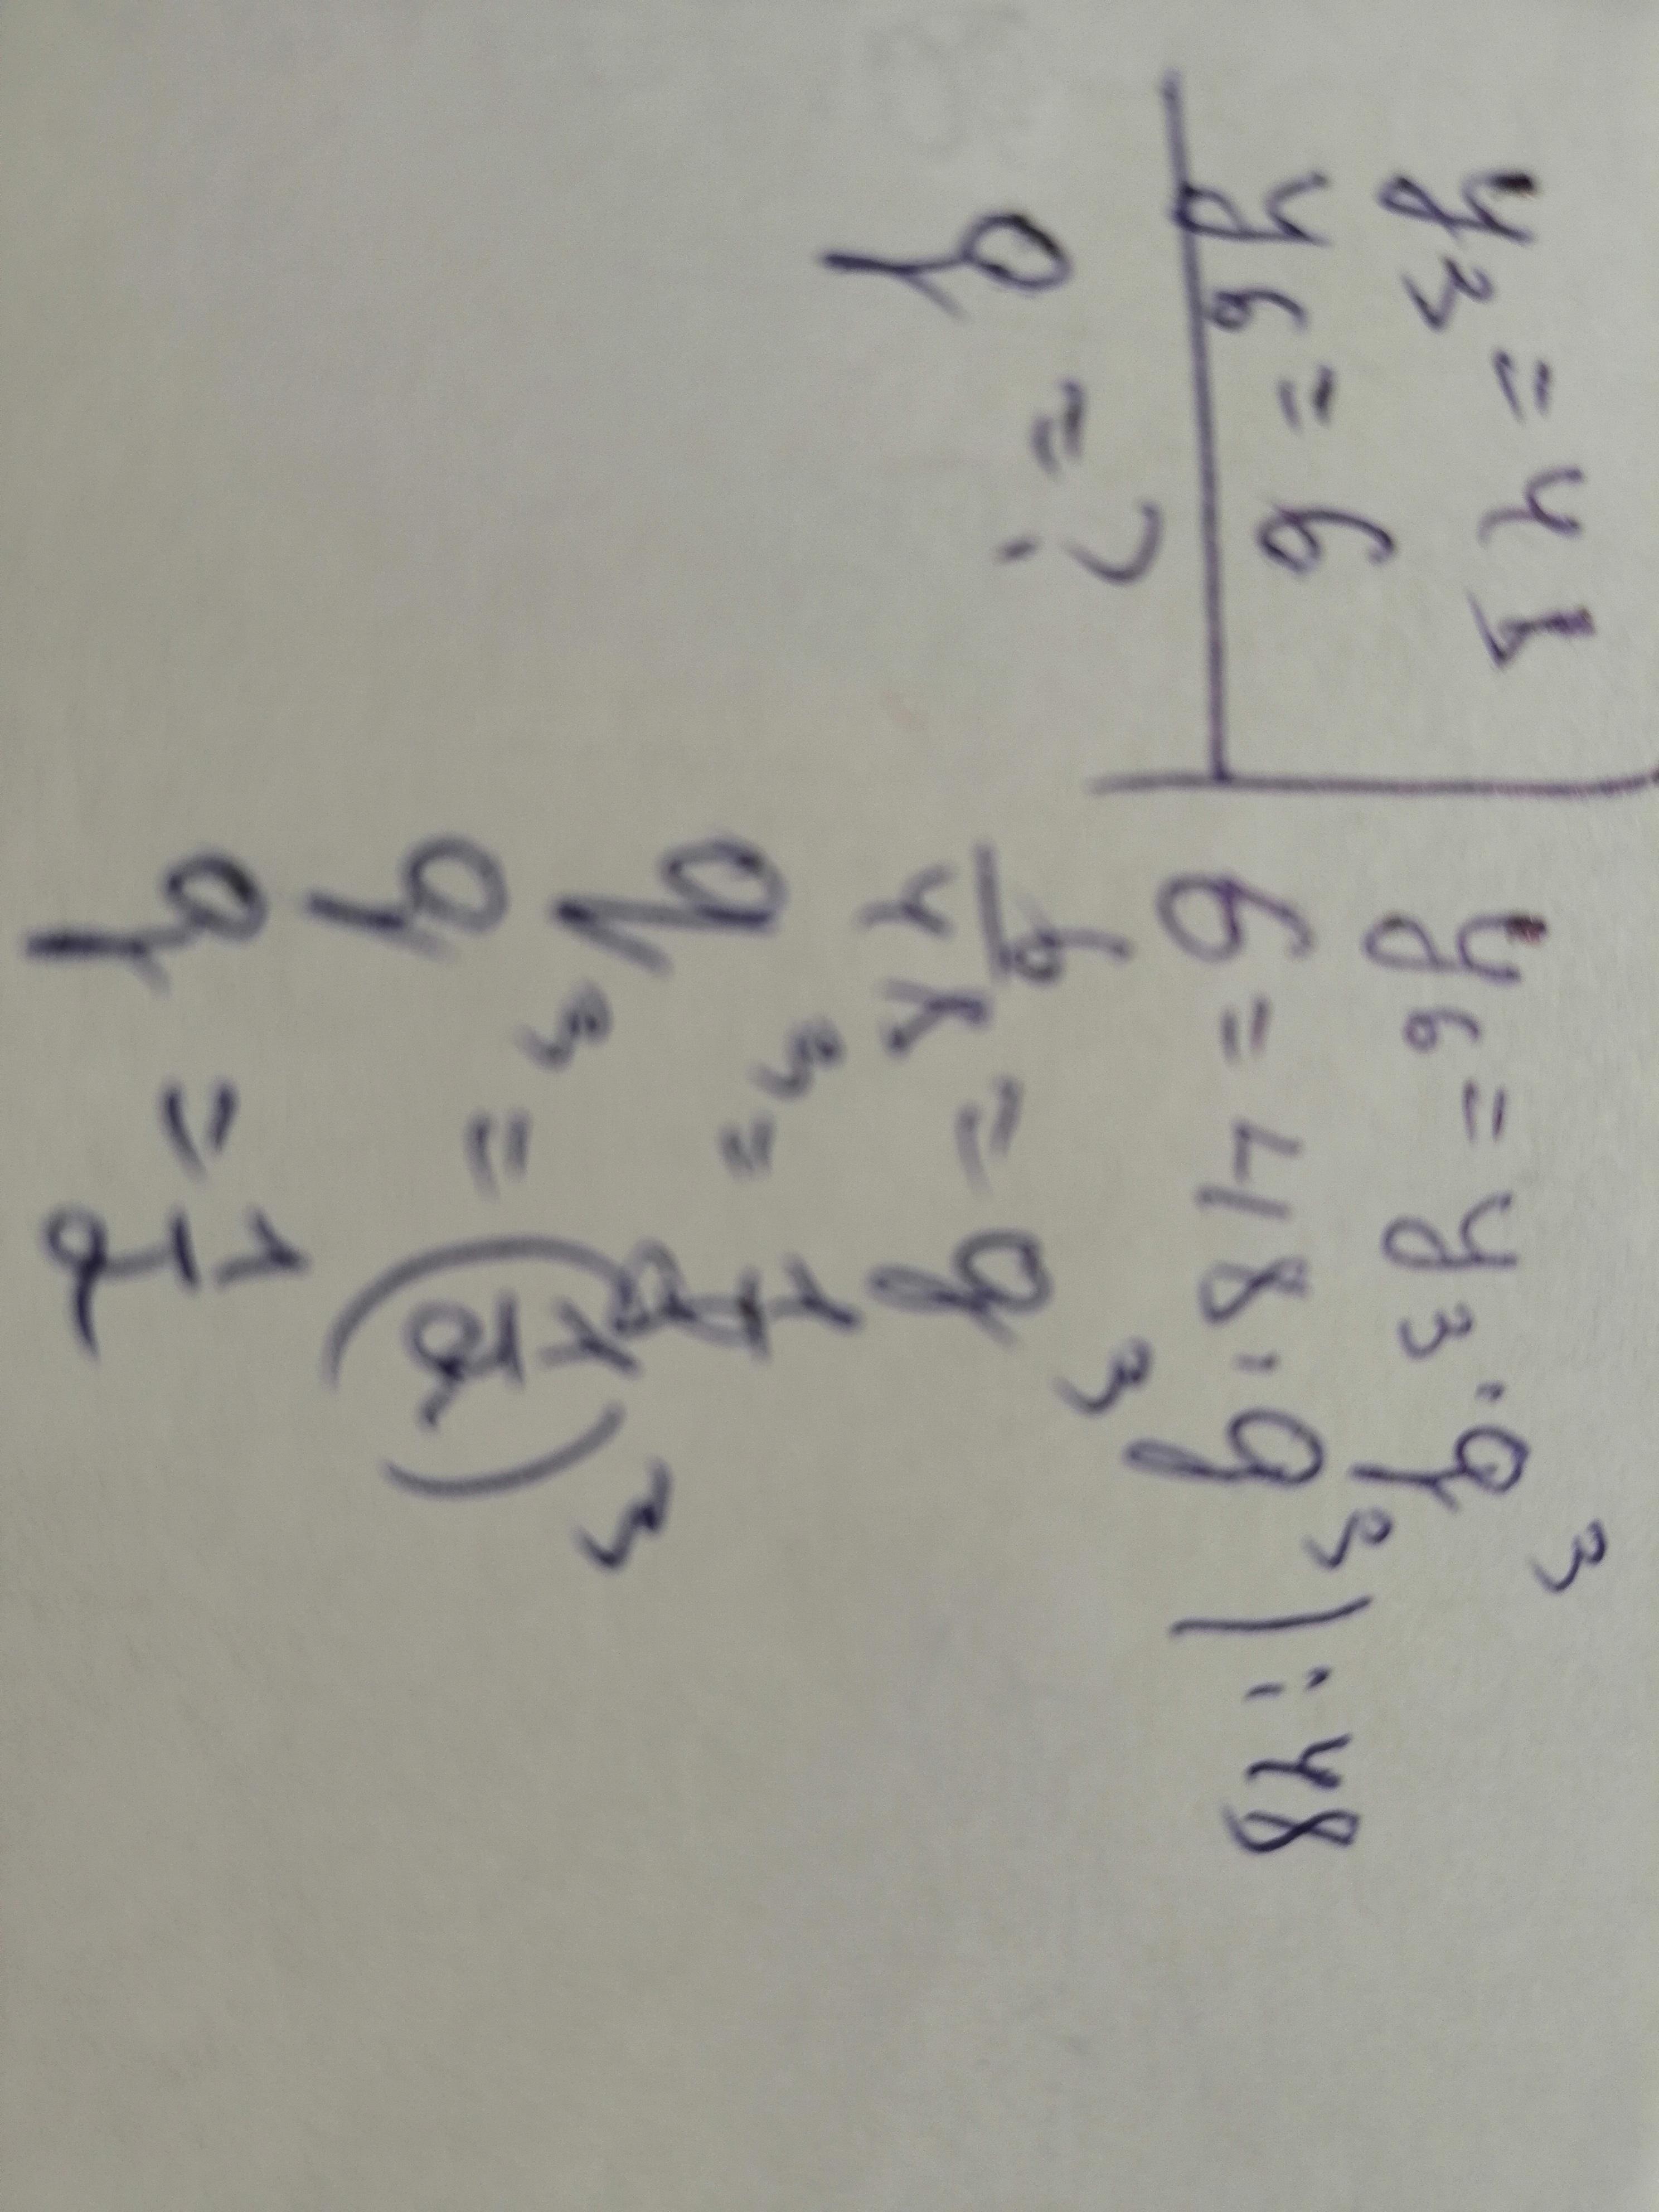 y₃ = 48
y₆ = 6
q = ?
y₆ = y₃ · q³
6 = 48 · q³ | : 48
6/48 = q³
q³ = 1/8
q³ = (1/2)³
q = 1/2